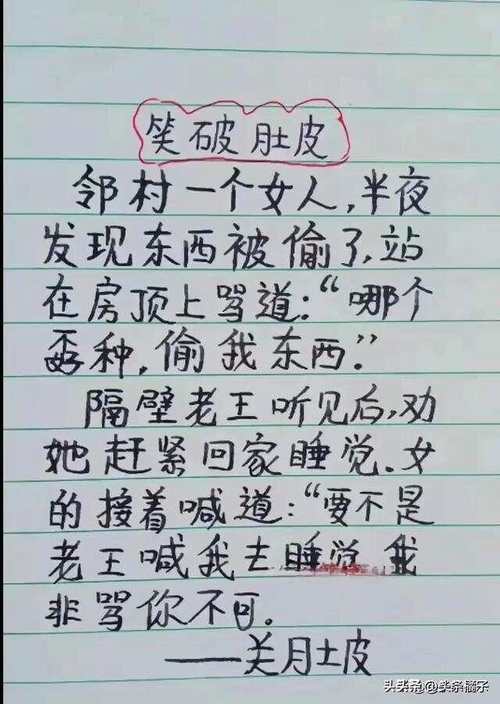 笑破肚皮
邻村一个女人,半夜
发现东西被偷了,站
在房顶上骂道:“哪个
孬种,偷我东西。”
隔壁老王听见后,劝
她赶紧回家睡觉.女
的接着喊道:“要不是
老王喊我去睡觉我
非骂你不可。
——关月土皮
头条@头条橘子